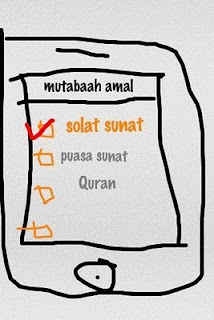 mutabaah amal
solat sunat
puasa sunat
Quran